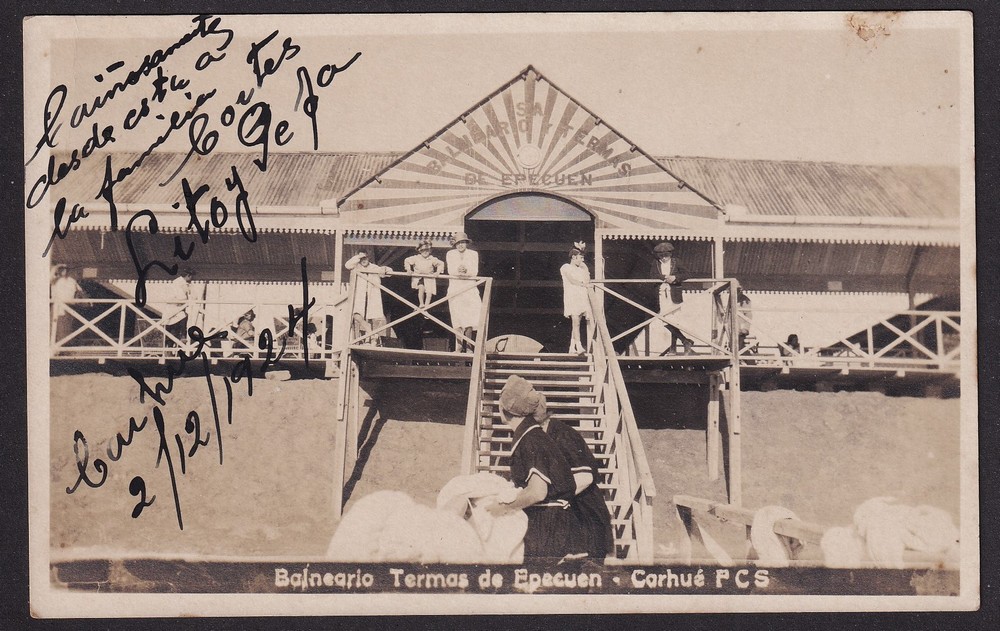 Cariñosamente
desde esta a
la familia Cortes
Lito y Gefa
Carhué
2/12/1924
S.A.
BALNEARIO Y TERMAS
DE EPECUEN
Balneario Termas de Epecuen - Carhué FCS